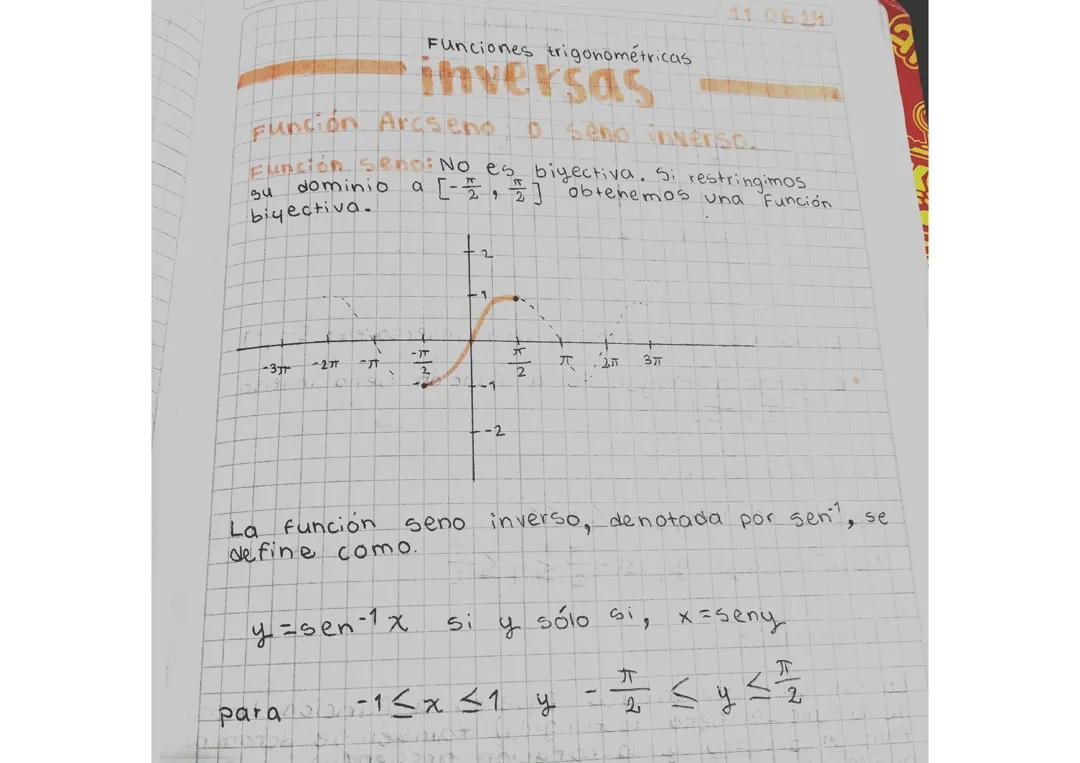 11 06 24
Funciones trigonométricas
inversas
Función Arcseno, o seno inverso.
Función seno: No es biyectiva. Si restringimos
su dominio a [-π/2, π/2] obtenemos una Función
biyectiva.
2
1
-3π -2π -π -π/2 π/2 π 2π 3π
-1
-2
La función seno inverso, denotada por sen⁻¹, se
define como.
y = sen⁻¹ x si y sólo si, x = sen y
para -1 ≤ x ≤ 1 y -π/2 ≤ y ≤ π/2